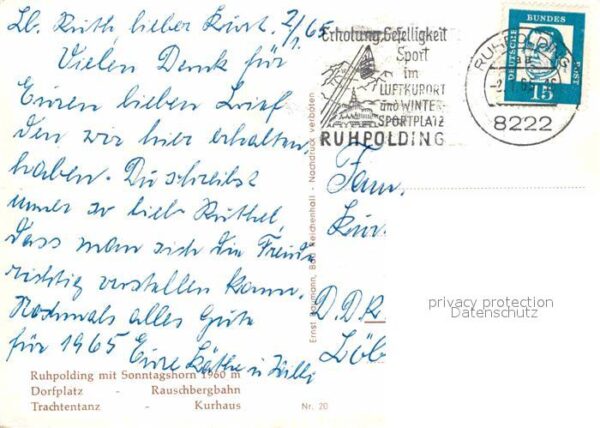 Lb. Ruth, lieber Kurt. 2/1.65
Vielen Dank für
Euren lieben Brief
den wir hier erhalten
haben. Du schreibst
immer so lieb Ruthel,
dass man sich die Freude
richtig vorstellen kann.
Nochmals alles Gute
für 1965 Eure Käthe u. Willy
Ruhpolding mit Sonntagshorn 1960 m
Dorfplatz - Rauschbergbahn
Trachtentanz - Kurhaus
Nr. 20
Ernst Baumann, Bad Reichenhall - Nachdruck verboten
Erholung, Geselligkeit
Sport
im
LUFTKURORT
und WINTER-
SPORTPLATZ
RUHPOLDING
RUHPOLDING
8222
DEUTSCHE BUNDESPOST
15
Fam.
Kur
D.D.R.
Löb
privacy protection
Datenschutz